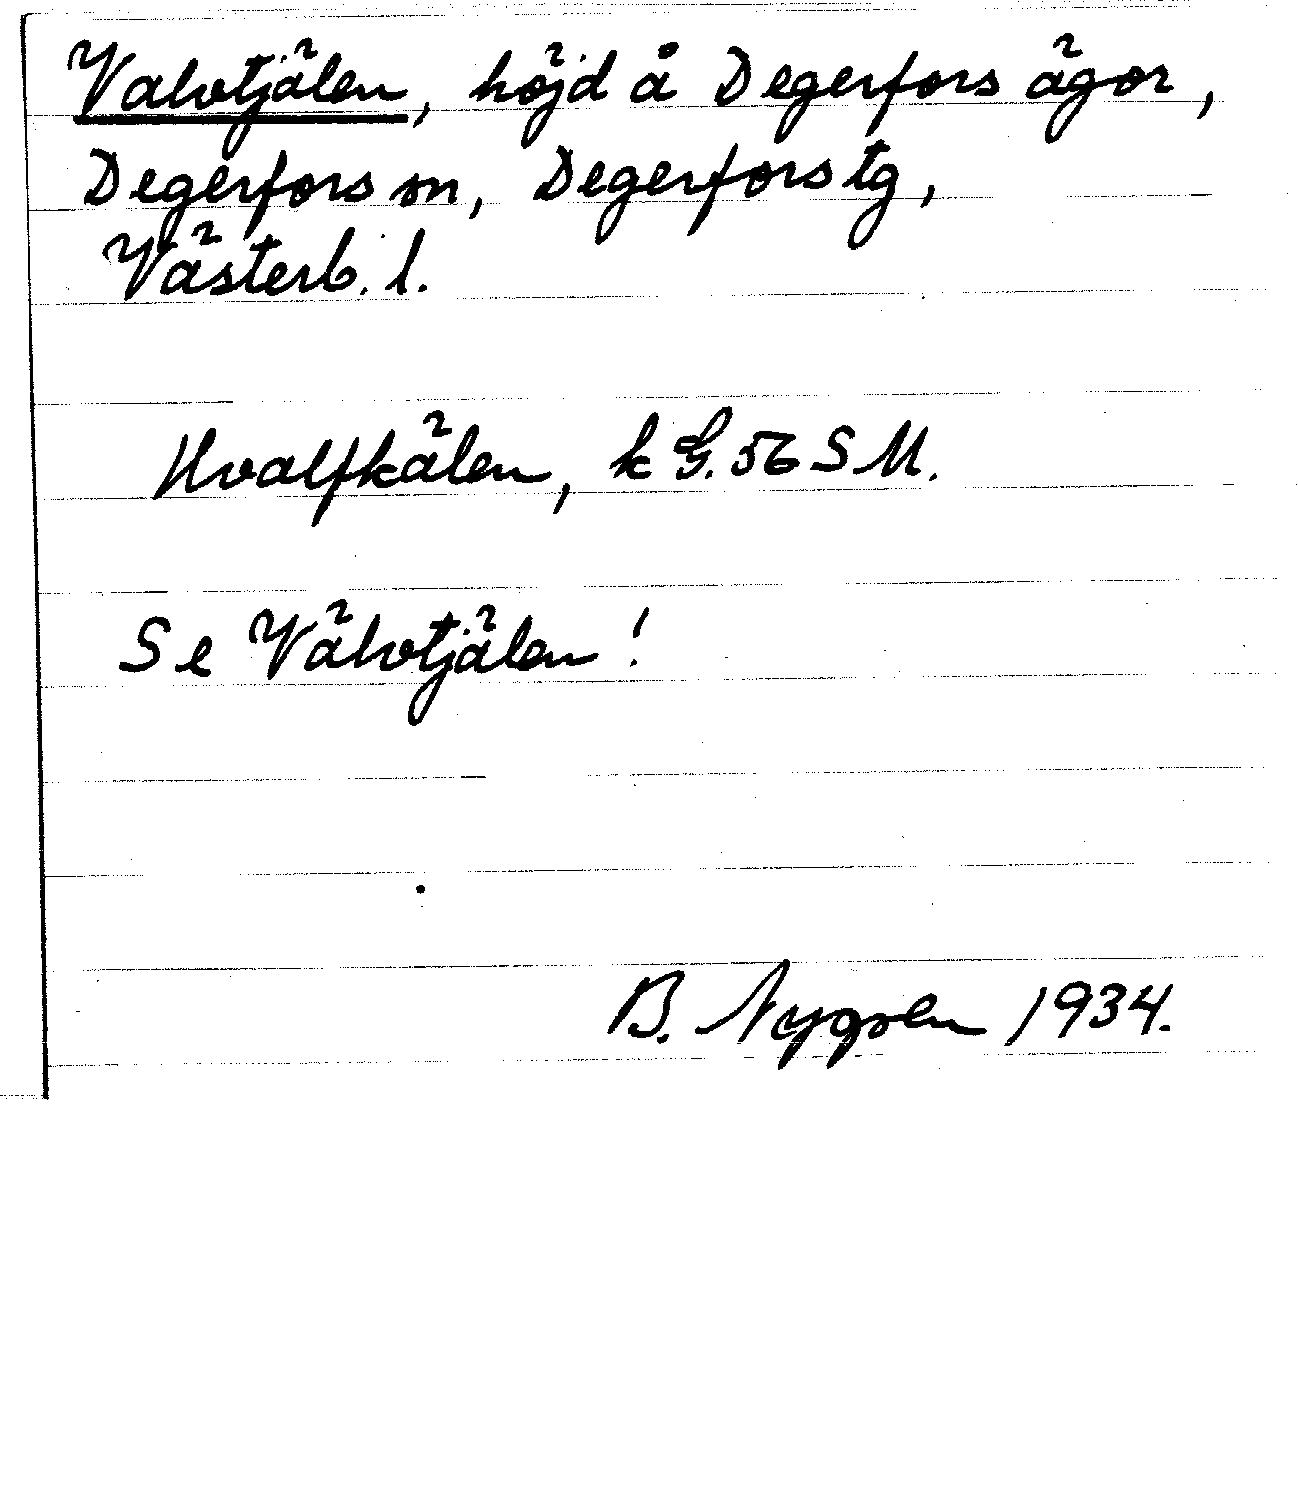 Valvtjälen, höjd å Degerfors ägor,
Degerfors sn, Degerfors tg,
Västerb. l.
Hvalfkälen, k G. 56 S M.
Se Välvtjälen!
B. Nygren 1934.